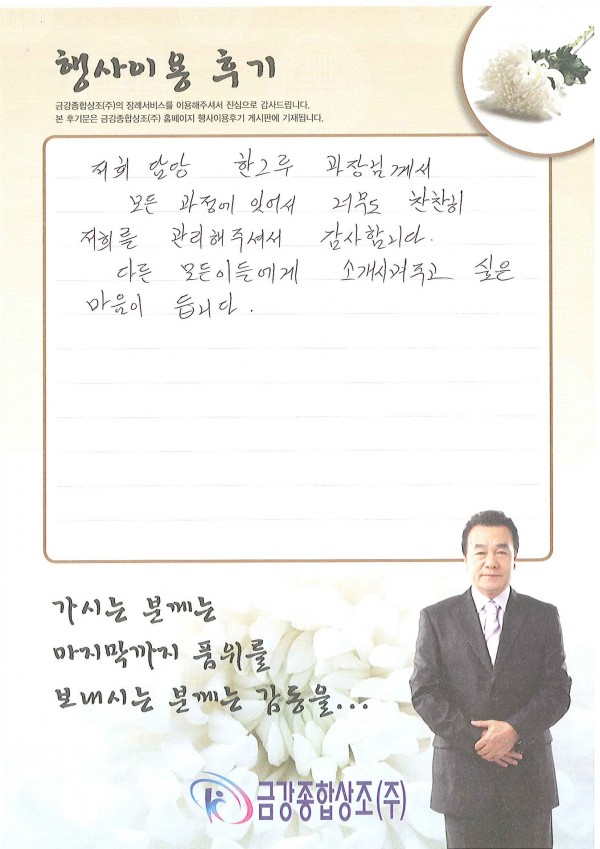 행사이용 후기
금강종합상조(주)의 장례서비스를 이용해주셔서 진심으로 감사드립니다.
본 후기문은 금강종합상조(주) 홈페이지 행사이용후기 게시판에 기재됩니다.
저희 담당 한그루 과장님께서
모든 과정에 잇어서 너무도 찬찬히
저희를 관리해주셔서 감사합니다.
다른 모든이들에게 소개시켜주고 싶은
마음이 듭니다.
가시는 분께는
마지막까지 품위를
보내시는 분께는 감동을...
금강종합상조(주)